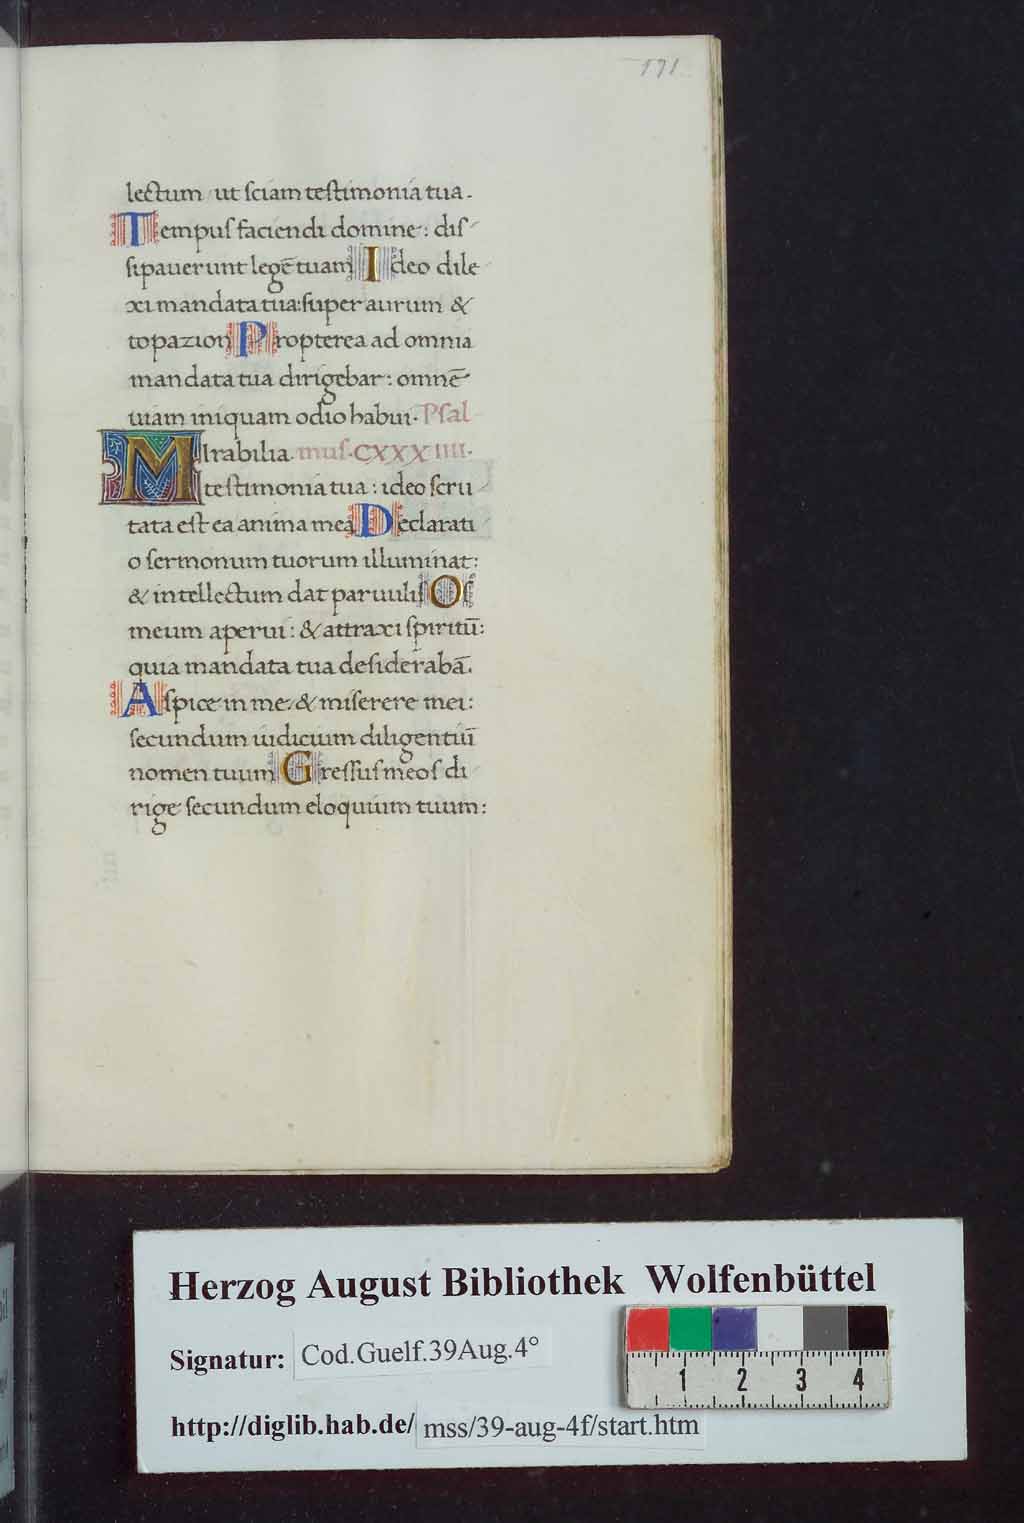 171
lectum ut sciam testimonia tua.
Tempus faciendi domine: dis
sipauerunt legē tuam Ideo dile
xi mandata tua: super aurum &
topazion Propterea ad omnia
mandata tua dirigebar: omnē
uiam iniquam odio habui. Psal
MIrabilia mus. CXXXIIII.
testimonia tua: ideo scru
tata est ea anima mea Declarati
o sermonum tuorum illuminat:
& intellectum dat paruulis Os
meum aperui: & attraxi spiritū:
quia mandata tua desiderabā.
Aspice in me & miserere mei:
secundum iudicium diligentiū
nomen tuum Gressus meos di
rige secundum eloquium tuum:
Herzog August Bibliothek Wolfenbüttel
Signatur: Cod.Guelf.39Aug.4°
http://diglib.hab.de/ mss/39-aug-4f/start.htm
1 2 3 4